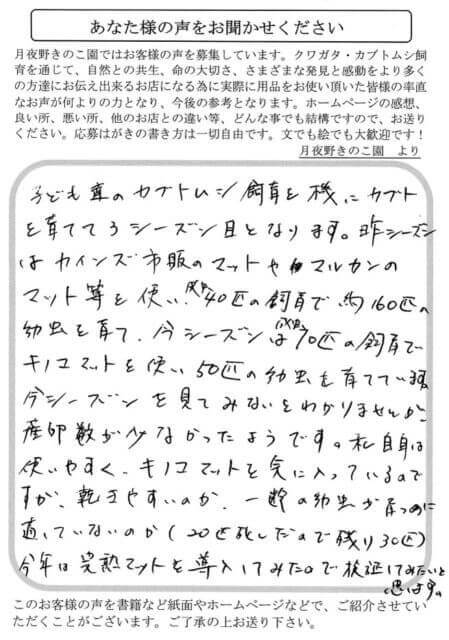 あなた様の声をお聞かせください
月夜野きのこ園ではお客様の声を募集しています。クワガタ・カブトムシ飼
育を通じて、自然との共生、命の大切さ、さまざまな発見と感動をより多く
の方達にお伝え出来るお店になる為に実際に用品をお使い頂いた皆様の率直
なお声が何よりの力となり、今後の参考となります。ホームページの感想、
良い所、悪い所、他のお店との違い等、どんな事でも結構ですので、お送り
ください。応募はがきの書き方は一切自由です。文でも絵でも大歓迎です！
月夜野きのこ園　より
子ども達のカブトムシ飼育を機にカブト
を育てて3シーズン目となります。昨シーズン
はカインズ市販のマットやマルカンの
マット等を使い、成虫40匹の飼育で約160匹の
幼虫を育て、今シーズンは成虫70匹の飼育で
キノコマットを使い50匹の幼虫を育てています
今シーズンを見てみないとわかりませんが、
産卵数が少なかったようです。私自身は
使いやすく、キノコマットを気に入っているので
すが、乾きやすいのか、一齢の幼虫が育つのに
適していないのか（20匹死んだので残り30匹）
今年は完熟マットを導入してみたので検証してみたいと
思います。
このお客様の声を書籍など紙面やホームページなどで、ご紹介させてい
ただくことがございます。ご了承の上お送り下さい。